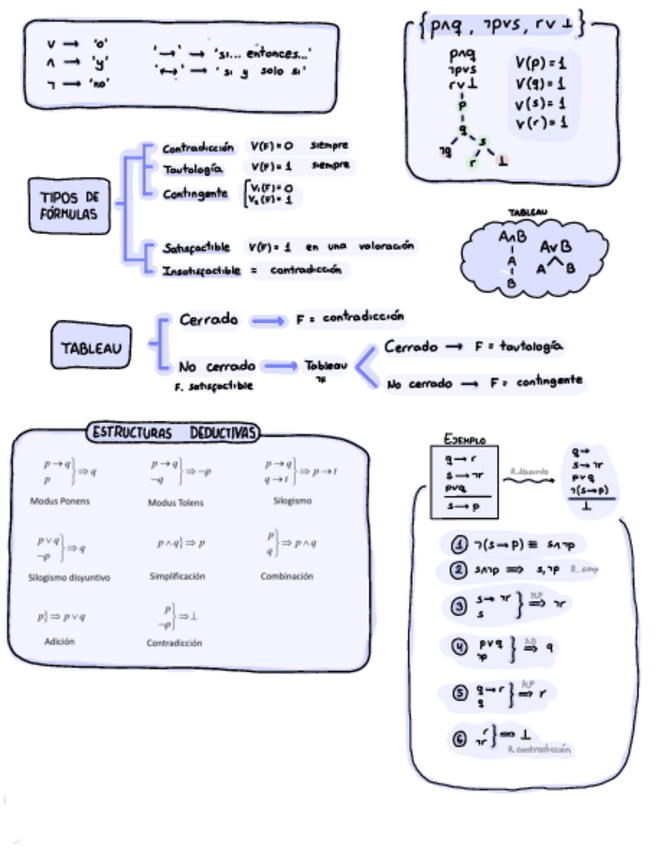 ∨ → 'o'
∧ → 'y'
¬ → 'no'
'→' → 'si... entonces...'
'↔' → 'si y solo si'
{p∧q, ¬p∨s, r∨⊥}
p∧q
¬p∨s
r∨⊥
p
q
¬q s
r ⊥
V(p)=1
V(q)=1
V(s)=1
V(r)=1
TIPOS DE
FÓRMULAS
Contradicción V(F)=0 siempre
Tautología V(F)=1 siempre
Contingente V₁(F)=0
V₂(F)=1
Satisfactible V(F)=1 en una valoración
Insatisfactible = contradicción
TABLEAU
A∧B
A
B
A∨B
A B
TABLEAU
Cerrado → F = contradicción
No cerrado → Tableau
F. satisfactible ¬F
Cerrado → F = tautología
No cerrado → F = contingente
ESTRUCTURAS DEDUCTIVAS
p → q
p } ⇒ q
Modus Ponens
p → q
¬q } ⇒ ¬p
Modus Tolens
p → q
q → r } ⇒ p → r
Silogismo
p ∨ q
¬p } ⇒ q
Silogismo disyuntivo
p ∧ q} ⇒ p
Simplificación
p
q } ⇒ p ∧ q
Combinación
p} ⇒ p ∨ q
Adición
p
¬p } ⇒ ⊥
Contradicción
EJEMPLO
q → r
s → ¬r
p∨q
s → p
R. Absurdo
q →
s → ¬r
p∨q
¬(s→p)
⊥
① ¬(s→p) ≡ s∧¬p
② s∧¬p ⇒ s,¬p R. simp
③ s → ¬r
s } ⇒ ¬r
MP
④ p∨q
¬p } ⇒ q
⑤ q→r
q } ⇒ r
MP
⑥ r
¬r } ⇒ ⊥
R. contradicción